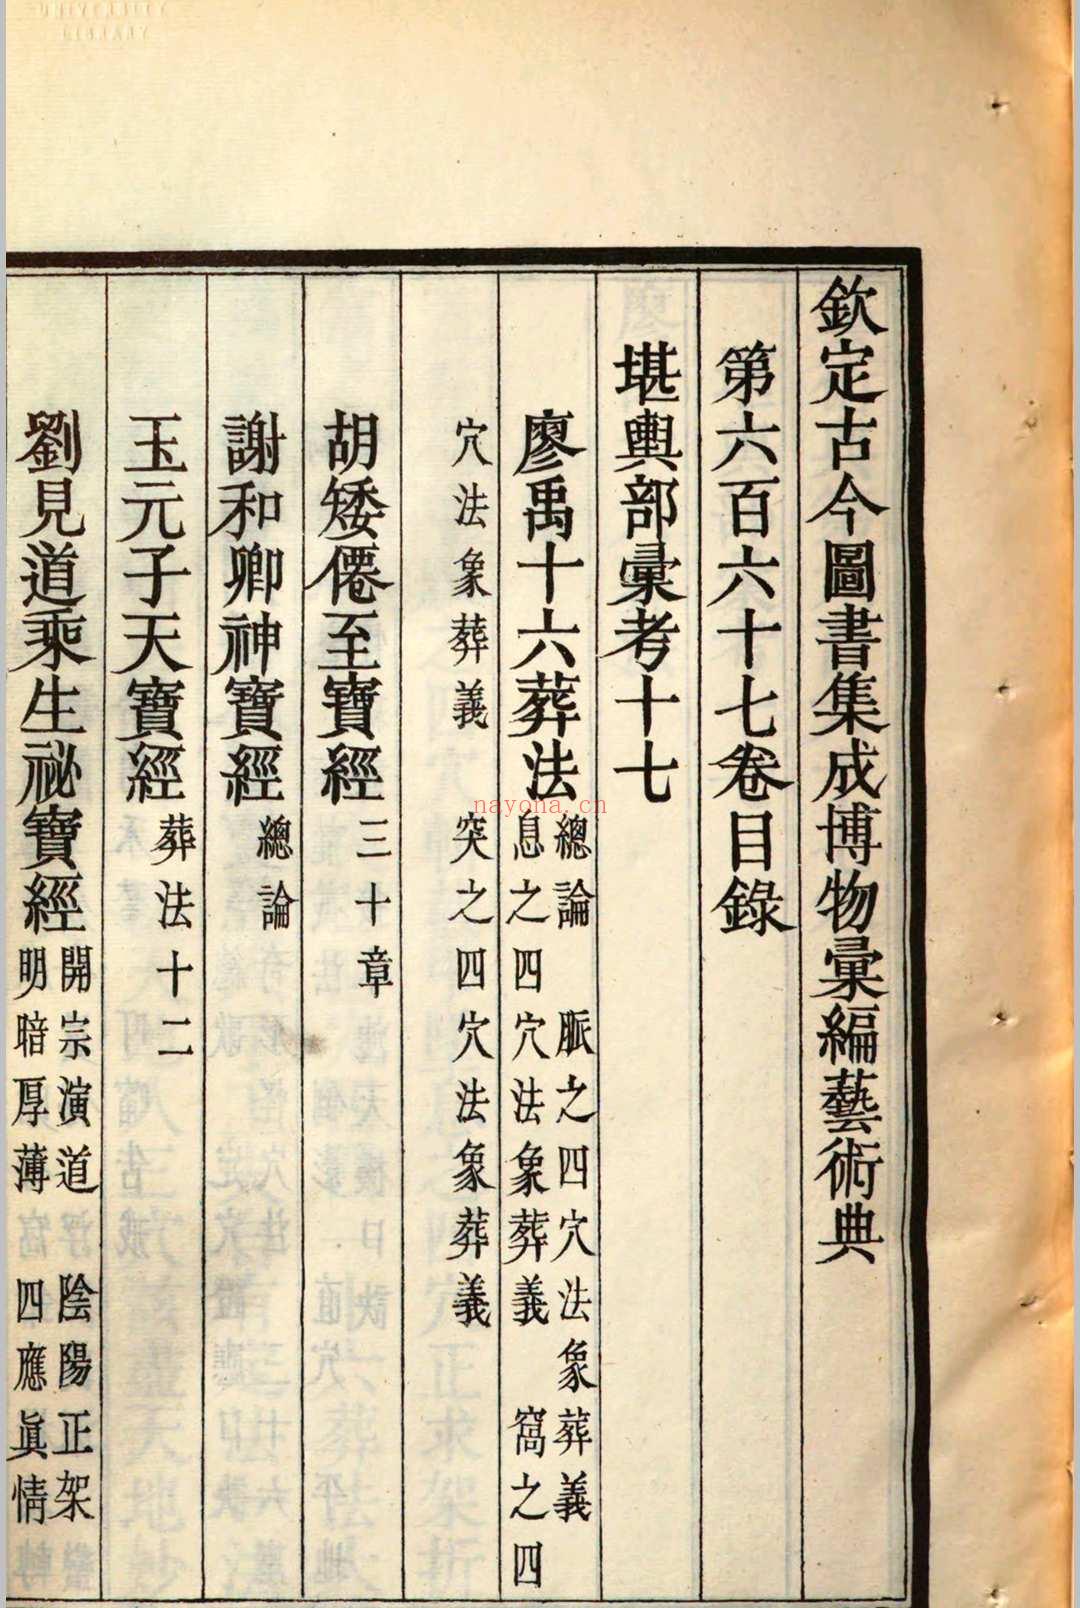 欽定古今圖書集成博物彙編藝術典
第六百六十七卷目錄
堪輿部彙考十七
廖禹十六葬法 總論 脈之四穴法象葬義
息之四穴法象葬義 窩之四
穴法象葬義 突之四穴法象葬義
胡矮僊至寶經 三十章
謝和卿神寶經 總論
玉元子天寶經 葬法十二
劉見道乘生祕寶經 開宗演道 陰陽正架
明暗厚薄 四應眞情
nayona.cn